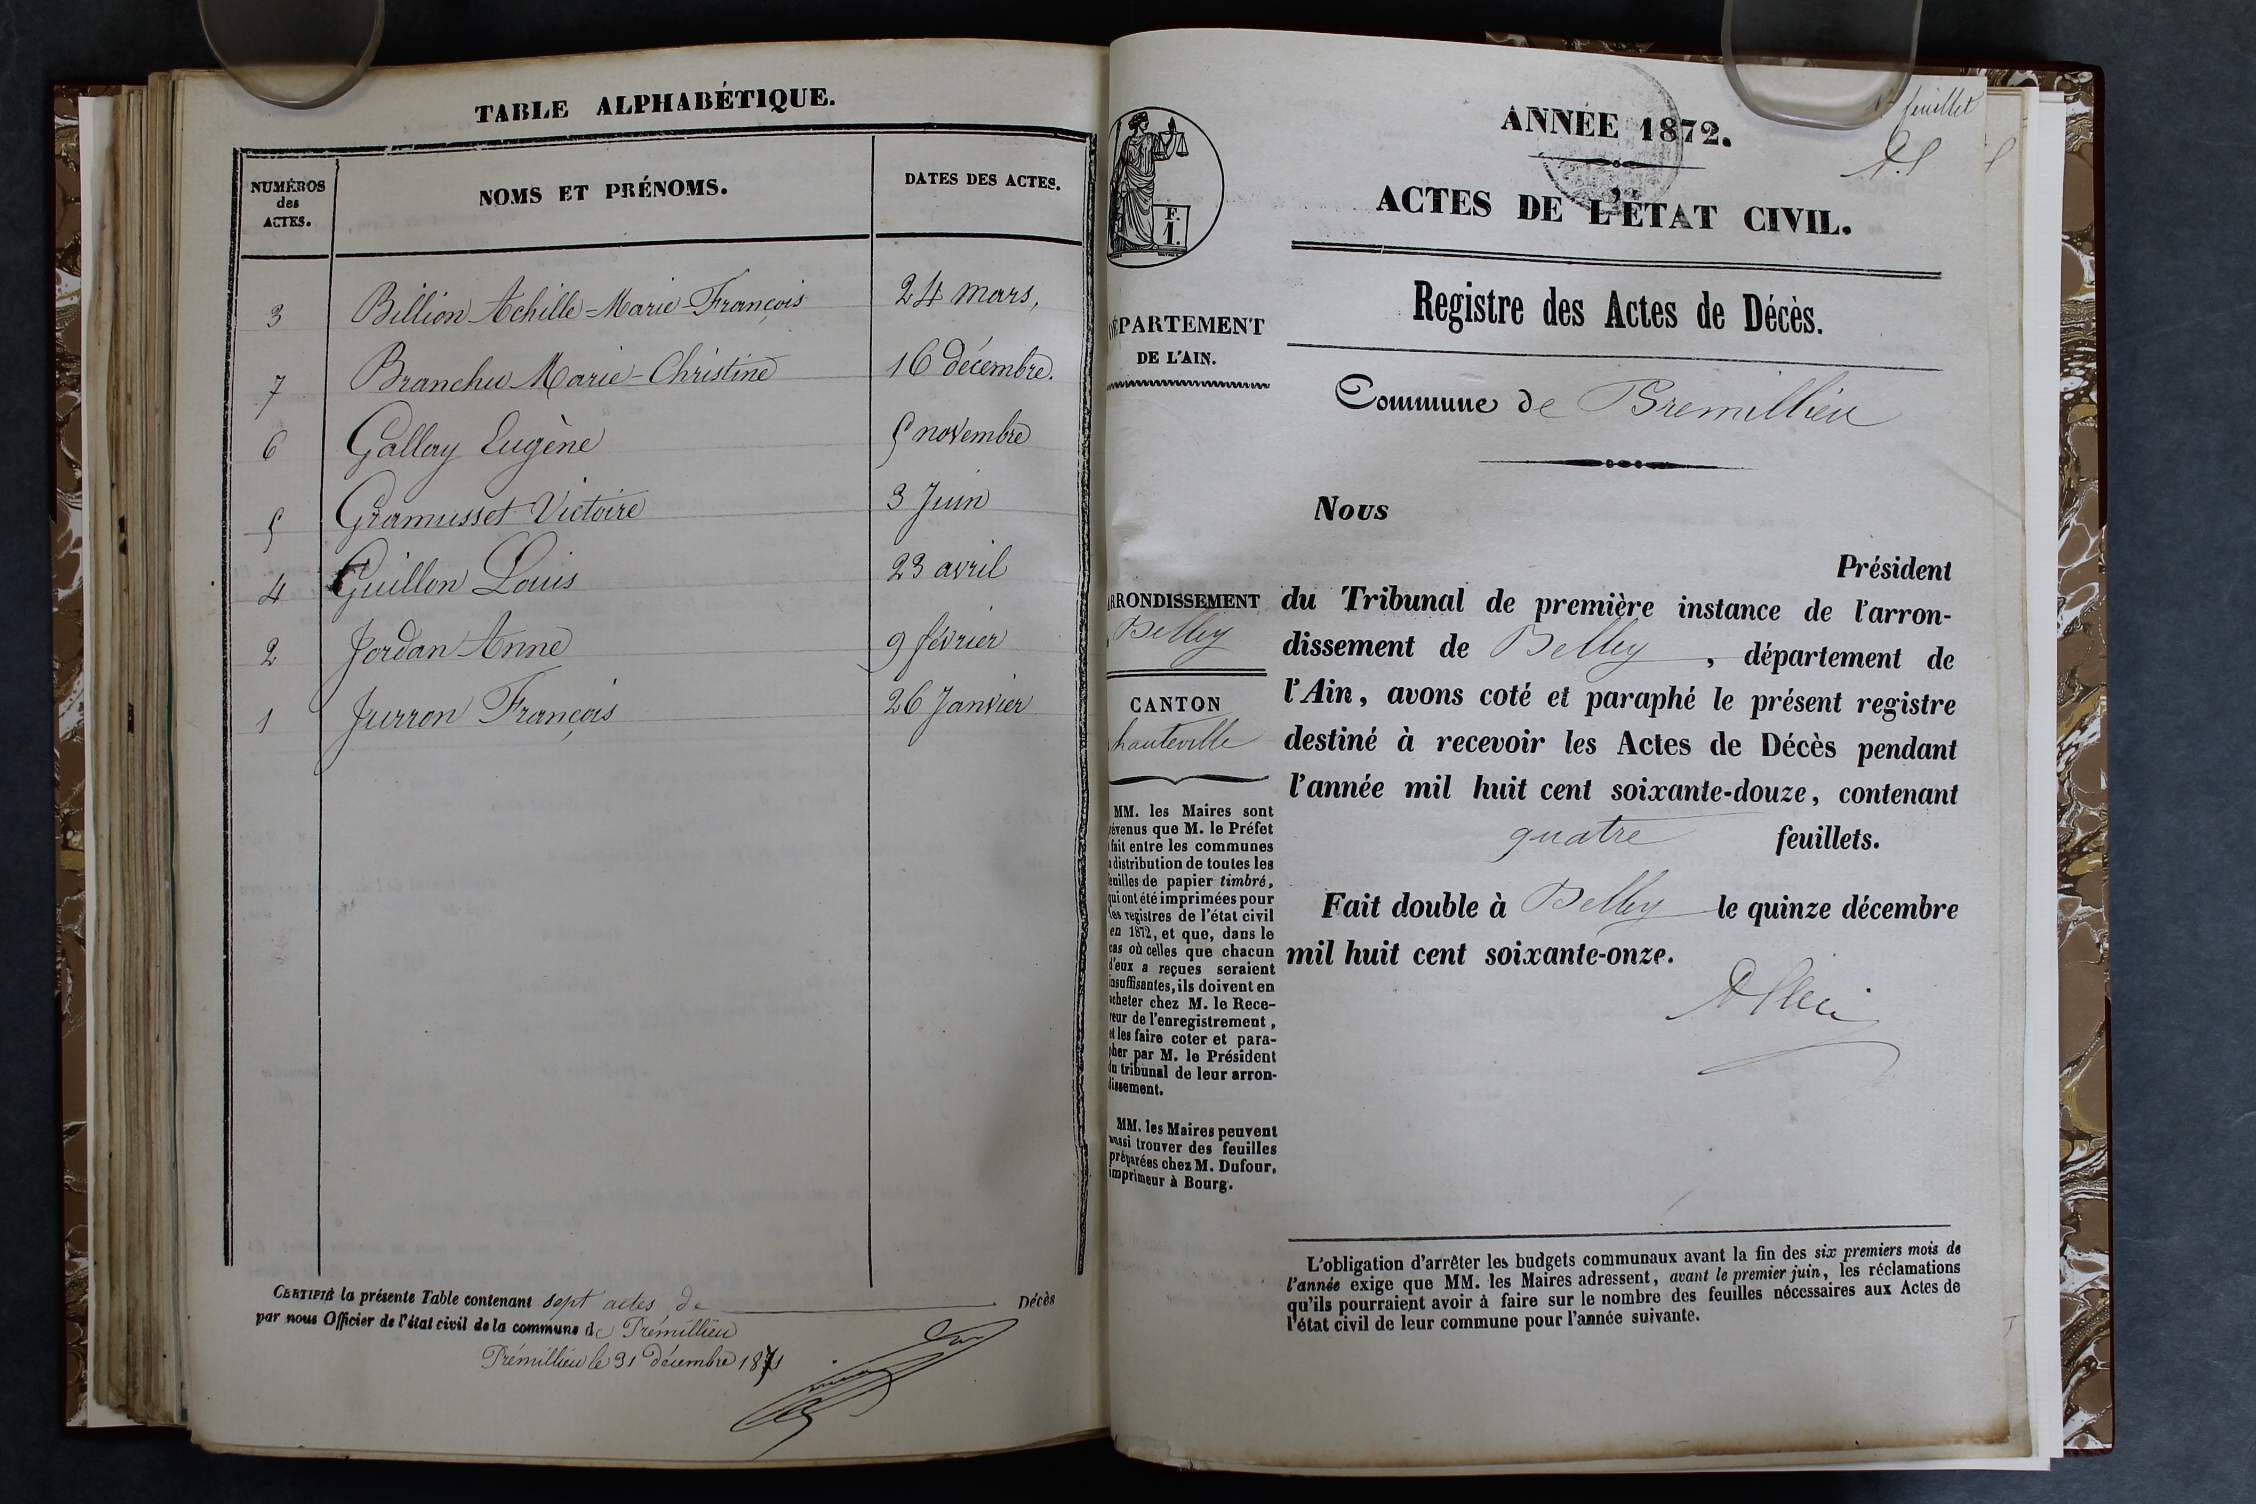 TABLE ALPHABÉTIQUE.
NUMÉROS
des
ACTES.
NOMS ET PRÉNOMS.
DATES DES ACTES.
3 Billion Achille-Marie-François 24 mars,
7 Branchu Marie-Christine 16 décembre.
6 Gallay Eugène 5 novembre
5 Gramusset Victoire 3 Juin
4 Guillon Louis 23 avril
2 Jordan Anne 9 février
1 Jurron François 26 Janvier
CERTIFIÉ la présente Table contenant sept actes de Décès
par nous Officier de l'état civil de la commune de Prémillieu
Prémillieu le 31 décembre 1871
1er feuillet
ANNÉE 1872.
ACTES DE L'ÉTAT CIVIL.
F.
1.
Registre des Actes de Décès.
DÉPARTEMENT
DE L'AIN.
Commune de Premillieu
Nous
Président
du Tribunal de première instance de l'arron-
dissement de Belley, département de
l'Ain, avons coté et paraphé le présent registre
destiné à recevoir les Actes de Décès pendant
l'année mil huit cent soixante-douze, contenant
quatre feuillets.
Fait double à Belley le quinze décembre
mil huit cent soixante-onze.
ARRONDISSEMENT
Belley
CANTON
hauteville
MM. les Maires sont
révenus que M. le Préfet
fait entre les communes
a distribution de toutes les
feuilles de papier timbré,
qui ont été imprimées pour
les registres de l'état civil
en 1872, et que, dans le
cas où celles que chacun
d'eux a reçues seraient
insuffisantes, ils doivent en
acheter chez M. le Rece-
veur de l'enregistrement,
et les faire coter et para-
pher par M. le Président
du tribunal de leur arron-
dissement.
MM. les Maires peuvent
aussi trouver des feuilles
préparées chez M. Dufour,
imprimeur à Bourg.
L'obligation d'arrêter les budgets communaux avant la fin des six premiers mois de
l'année exige que MM. les Maires adressent, avant le premier juin, les réclamations
qu'ils pourraient avoir à faire sur le nombre des feuilles nécessaires aux Actes de
l'état civil de leur commune pour l'année suivante.